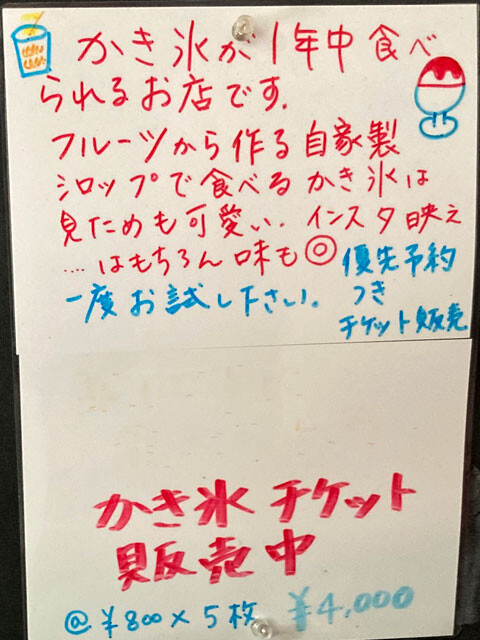 かき氷が1年中食べ
られるお店です.
フルーツから作る自家製
シロップで食べるかき氷は
見ためも可愛い.インスタ映え
....はもちろん味も◎
一度お試し下さい。
優先予約
つき
チケット販売
かき氷チケット
販売中
@¥800×5枚 ¥4,000